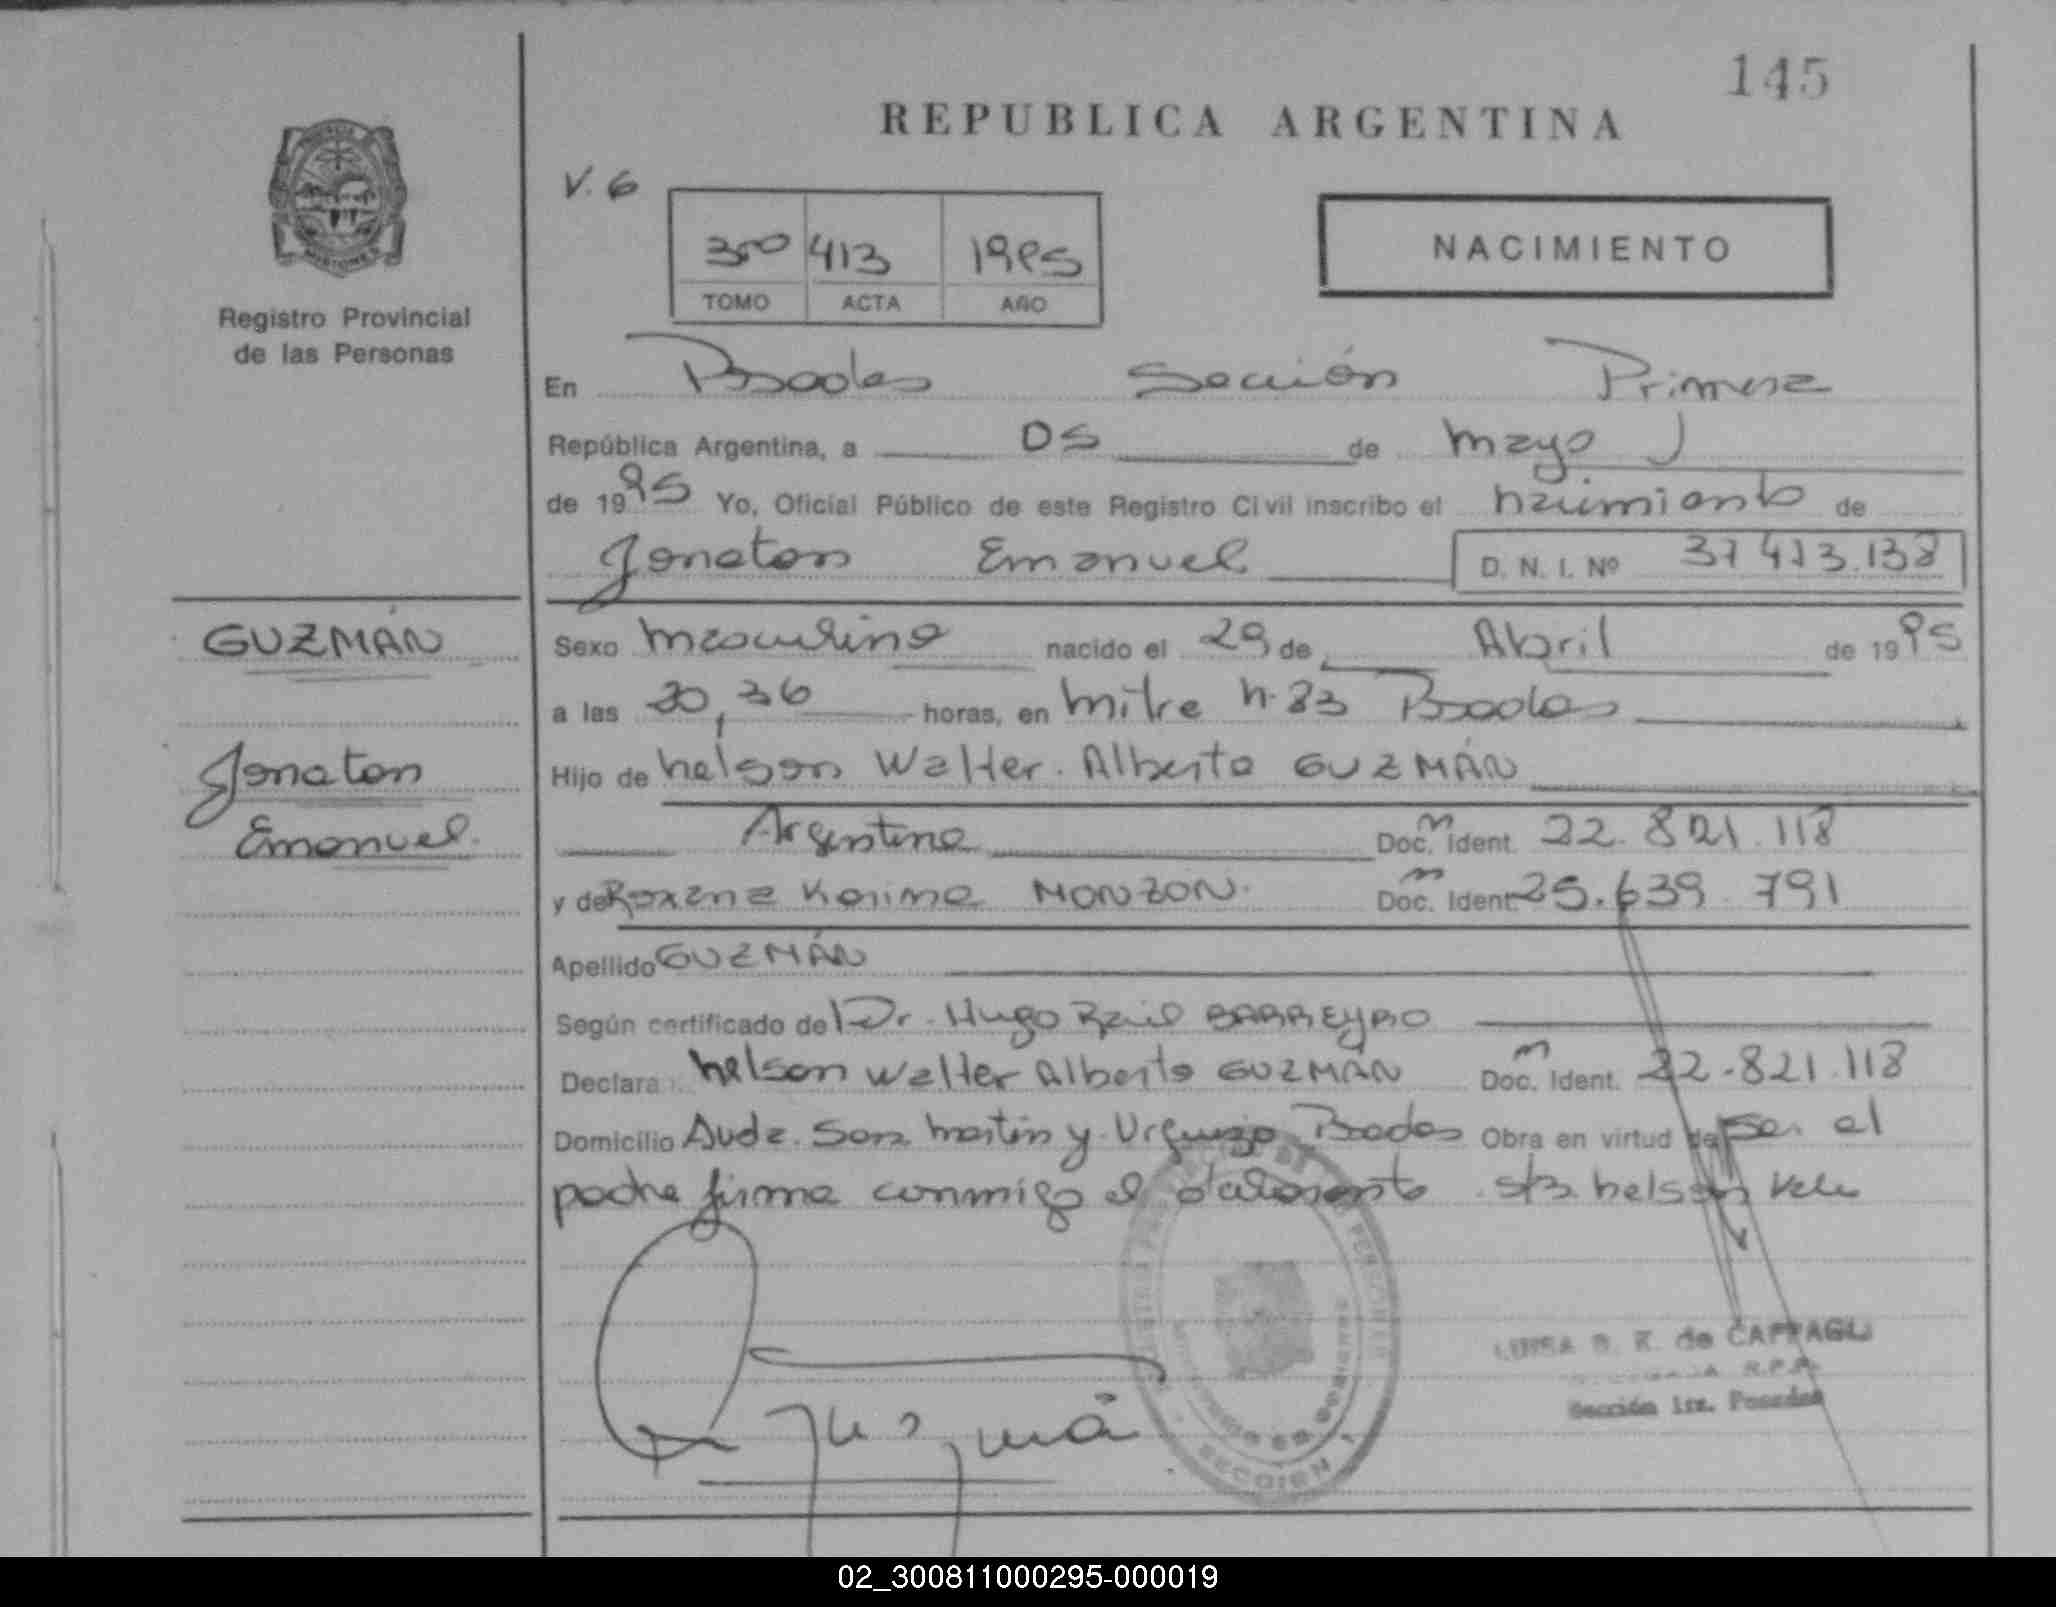 145
REPUBLICA ARGENTINA
Registro Provincial
de las Personas
V. 6
300 413 1995
TOMO ACTA AÑO
NACIMIENTO
En Posadas Sección Primera
República Argentina, a 05 de mayo
de 1995 Yo, Oficial Público de este Registro Civil inscribo el nacimiento de
Jonatan Emanuel D. N. I. Nº 37 413.138
GUZMÁN
Jonatan
Emanuel.
Sexo masculino nacido el 29 de Abril de 1995
a las 20,36 horas, en mitre n. 83 Posadas
Hijo de nelson Walter. Alberto GUZMÁN
Argentina Doc. Ident. 22.821.118
y de Roxana Karina MONZON. Doc. Ident 25.639.791
Apellido GUZMÁN
Según certificado de Dr. Hugo Raúl BARREYRO
Declara: nelson Walter Alberto GUZMÁN Doc. Ident. 22.821.118
Domicilio Avda. San martín y Urquiza Posadas Obra en virtud de ser el
padre firma conmigo el declarante s/b. nelson vale
Guzmán
SECCION 1
LUISA B. K. de CAPPAGLI
R.P.P.
Sección 1ra. Posadas
02_300811000295-000019